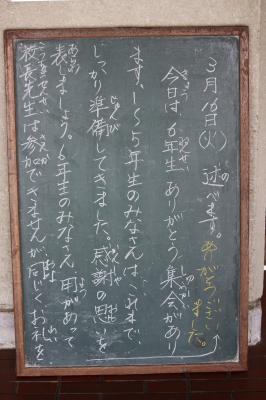 3月16日(火)
今日は、6年生ありがとう集会があり
ます。1〜5年生のみなさんは、これまで、
しっかり準備してきました。感謝の思いを
表しましょう。6年生のみなさん、用があって
校長先生は参加できませんが、同じくお礼を
述べます。ありがとうございました。